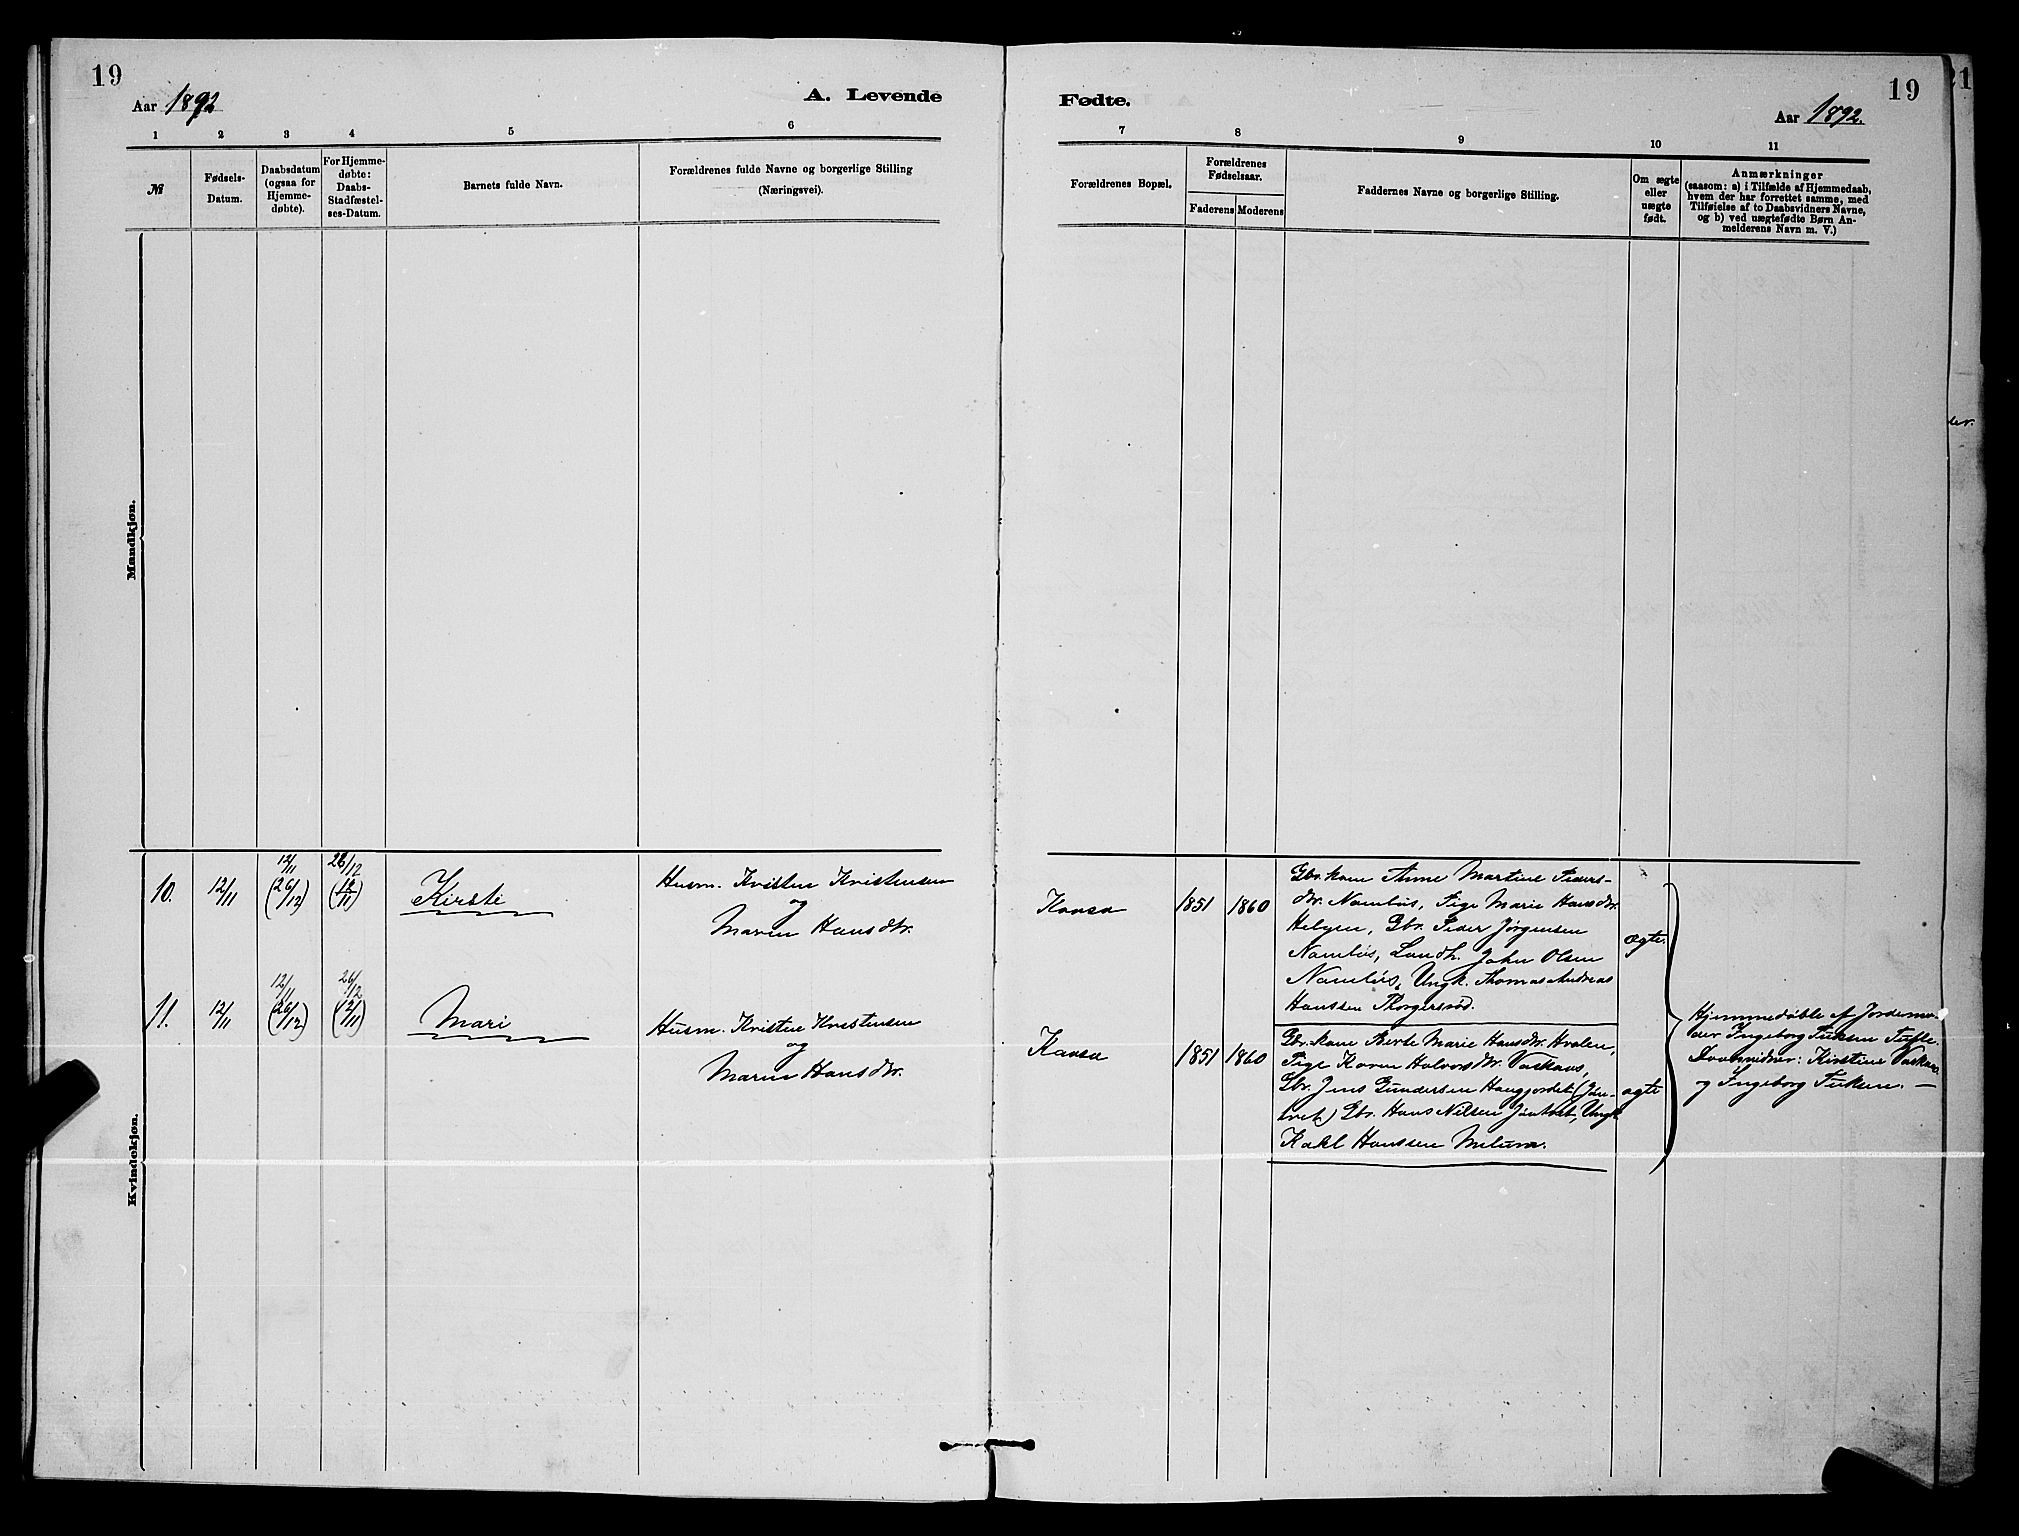 19
Aar 1892
A. Levende
1 2 3 4 5 6
№
Fødsels-
Datum.
Daabsdatum
(ogsaa for
Hjemme-
døbte).
For Hjemme-
døbte:
Daabs-
Stadfæstel-
ses-Datum.
Barnets fulde Navn.
Forældrenes fulde Navne og borgerlige Stilling
(Næringsvei).
Mandkjøn.
Kvindekjøn.
10. 12/11 12/11 (26/12) 26/12 (12/11) Kirsti
Husm. Kristen Kristensen
og
Maren Hansdtr.
11. 12/11 12/11 (26/12) 26/12 (12/11) Mari
Husm. Kristen Kristensen
og
Maren Hansdtr.
Fødte.
19
Aar 1892.
7 8 9 10 11
Forældrenes Bopæl.
Forældrenes
Fødselsaar.
Faderens Moderens
Faddernes Navne og borgerlige Stilling.
Om ægte
eller
uægte
født.
Anmærkninger
(saasom: a) i Tilfælde af Hjemmedaab,
hvem der har forrettet samme, med
Tilføielse af to Daabsvidners Navne,
og b) ved uægtefødte Børn An-
melderens Navn m. V.)
Kaasa 1851 1860
Gbr. kone Anne Martine Peders-
dtr. Namløs, Pige Marie Hansdtr.
Helgen, Gbr. Peder Jørgensen
Namløs, Landh. John Olsen
Namløs, Ungk. Thomas Andreas
Hanssen Thorgersrød.
ægte.
Kaasa 1851 1860
Gbr. kone Berte Marie Hansdtr. Hvalen,
Pige Karen Halvorsdtr. Vaskaas,
Gbr. Jens Gundersen Haugjordet
Gbr. Hans Nilsen Ungk.
Karl Hanssen Melum.
ægte
Hjemmedøbte af Jordemo-
der Ingeborg Tufte.
Kirstine
og Ingeborg
21